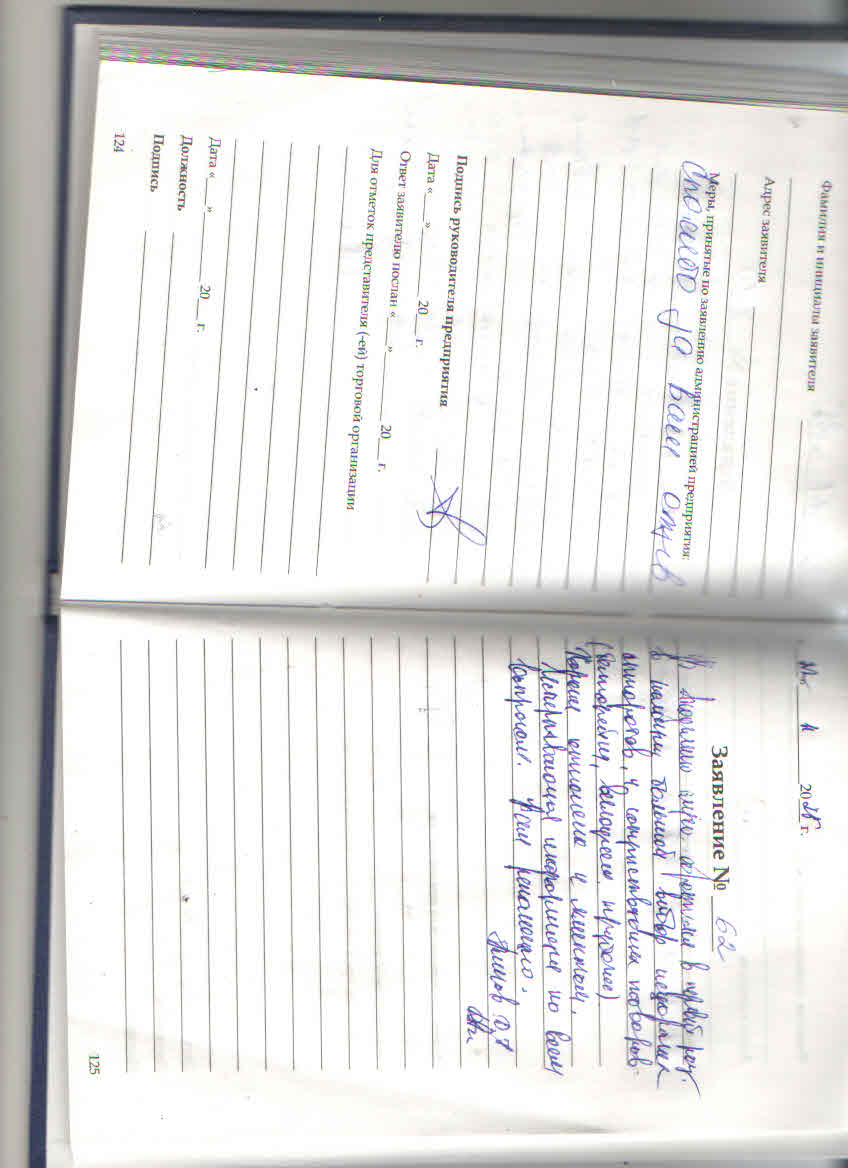 Фамилия и инициалы заявителя
Адрес заявителя
Меры, принятые по заявлению администрацией предприятия:
Спасибо за ваш отзыв
Подпись руководителя предприятия
Дата «___» ______ 20___ г.
Ответ заявителю послан «___» ______ 20___ г.
Для отметок представителя (-ей) торговой организации
Дата «___» ______ 20___ г.
Должность
Подпись
124
11 20 г.
Заявление № 62
в первый раз.
в наличии большой выбор недорогих
и сопутствующих товаров
Хорошее отношение к клиентам,
Исчерпывающая информация по всем
вопросам. Всем рекомендую.
125